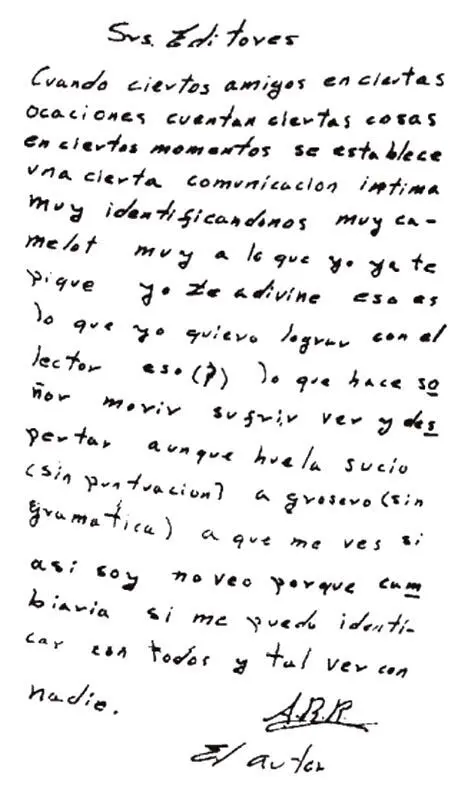 Srs. Editores
Cuando ciertos amigos en ciertas
ocaciones cuentan ciertas cosas
en ciertos momentos se establece
una cierta comunicacion intima
muy identificandonos muy ca-
melot muy a lo que yo ya te
pique yo te adivine eso es
lo que yo quiero lograr con el
lector eso (?) lo que hace so
ñar morir sufrir ver y des
pertar aunque huela sucio
(sin puntuacion) a grosero (sin
gramatica) a que me ves si
asi soy no veo porque cam
biaria si me puedo identi-
car con todos y tal ver con
nadie.
A.R.R.
El autor